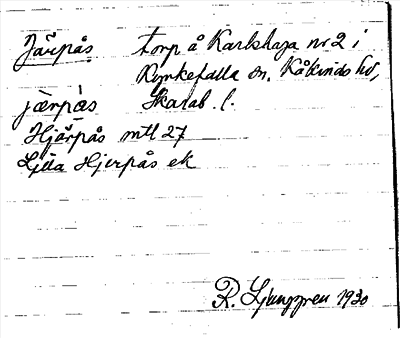 Järpås torp å Karlshaga nr 2 i
Rynkefalla sn, Kåkinds hd,
jærpås Skarab. l.
Hjärpås mtl 27
Lilla Hjerpås ek
R. Ljunggren 1930